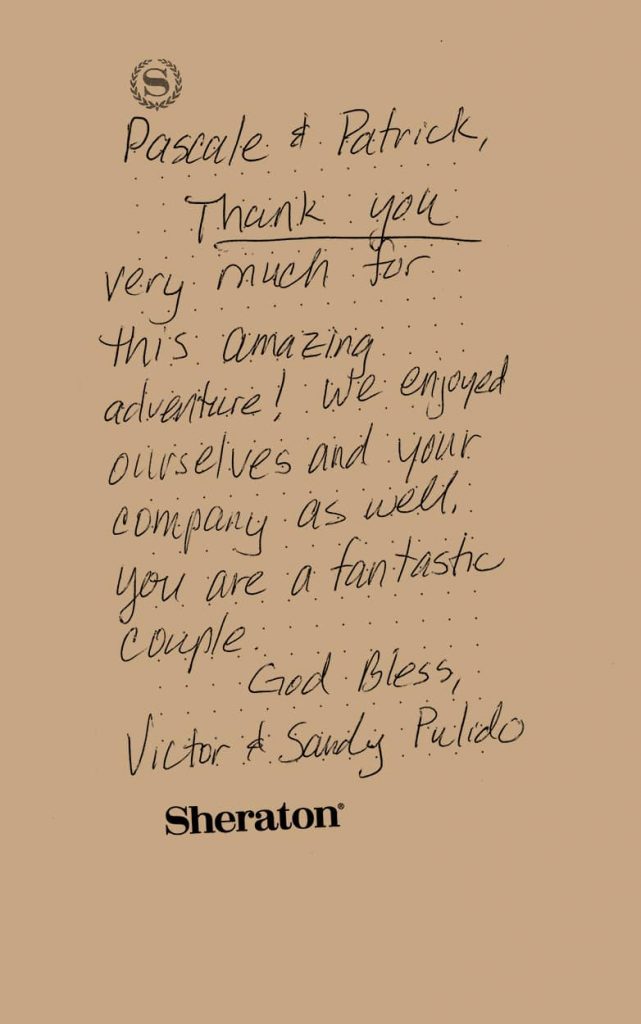 S
Pascale & Patrick,
Thank you
very much for
this amazing
adventure! We enjoyed
ourselves and your
company as well.
You are a fantastic
couple.
God Bless,
Victor & Sandy Pulido
Sheraton®